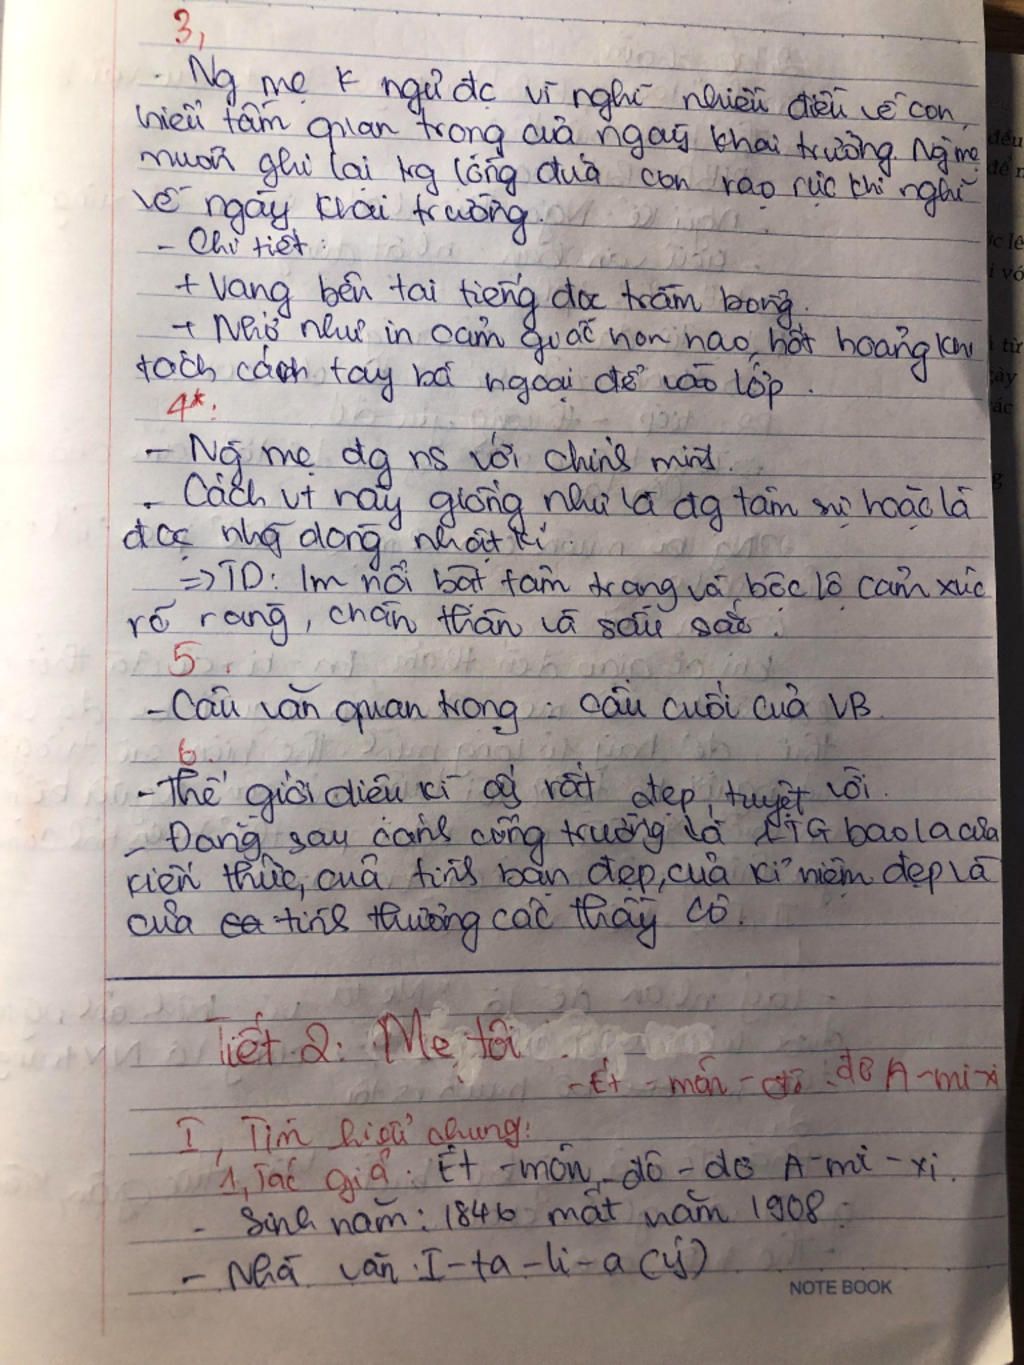 3,
- Ng mẹ k ngủ đc vì nghĩ nhiều điều về con,
hiểu tầm quan trọng của ngày khai trường. Ng mẹ
muốn ghi lại trg lòng đứa con rạo rực khi nghĩ
về ngày khai trường.
- Chi tiết:
+ Vang bên tai tiếng đọc trầm bổng.
+ Nhớ như in cảm giác non nao, hốt hoảng khi
tách cách tay bà ngoại để vào lớp.
4*:
- Ng mẹ đg ns với chính mình.
- Cách vt này giống như là đg tâm sự hoặc là
đọc nhg dòng nhật kí.
=> TD: lm nổi bật tâm trạng và bộc lộ cảm xúc
rõ ràng, chân thần và sâu sắc.
5.
- Câu văn quan trọng: câu cuối của VB
6.
- Thế giới diệu kì ấy rất đẹp, tuyệt vời.
- Đằng sau cánh cổng trường là TG bao la của
kiến thức, của tình bạn đẹp, của kỉ niệm đẹp và
của tình thương các thầy cô.
Tiết 2: Mẹ tôi
- Ét - môn - đô - đơ A-mi-xi
I, Tìm hiểu chung:
1, Tác giả: Ét - môn - đô - đơ A-mi-xi.
- Sinh năm: 1846 mất năm 1908.
- Nhà văn I-ta-li-a (ý)
NOTE BOOK
đều
để n
từ